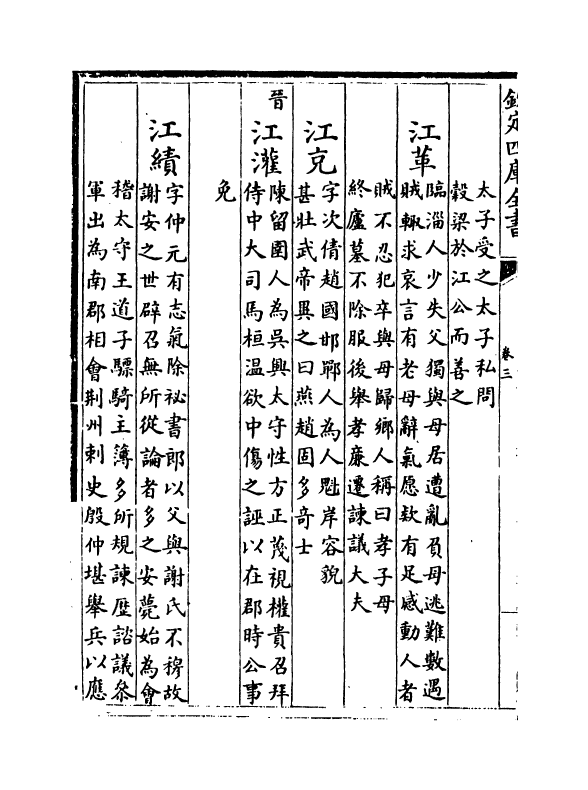 欽定四庫全書
卷三
太子受之太子私問
穀梁於江公而善之
江革
臨淄人少失父獨與母居遭亂負母逃難數遇
賊輙求哀言有老母辭氣愿欵有足感動人者
賊不忍犯卒與母歸鄉人稱曰孝子母
終廬墓不除服後舉孝廉遷諫議大夫
江克
字次倩趙國邯鄲人為人魁岸容貌
甚壯武帝異之曰燕趙固多奇士
晉
江灌
陳留圉人為吳興太守性方正蔑視權貴召拜
侍中大司馬桓温欲中傷之誣以在郡時公事
免
江績
字仲元有志氣除祕書郎以父與謝氏不穆故
謝安之世辟召無所從論者多之安薨始為會
稽太守王道子驃騎主簿多所規諫歴諮議叅
軍出為南郡相會荆州刺史殷仲堪舉兵以應